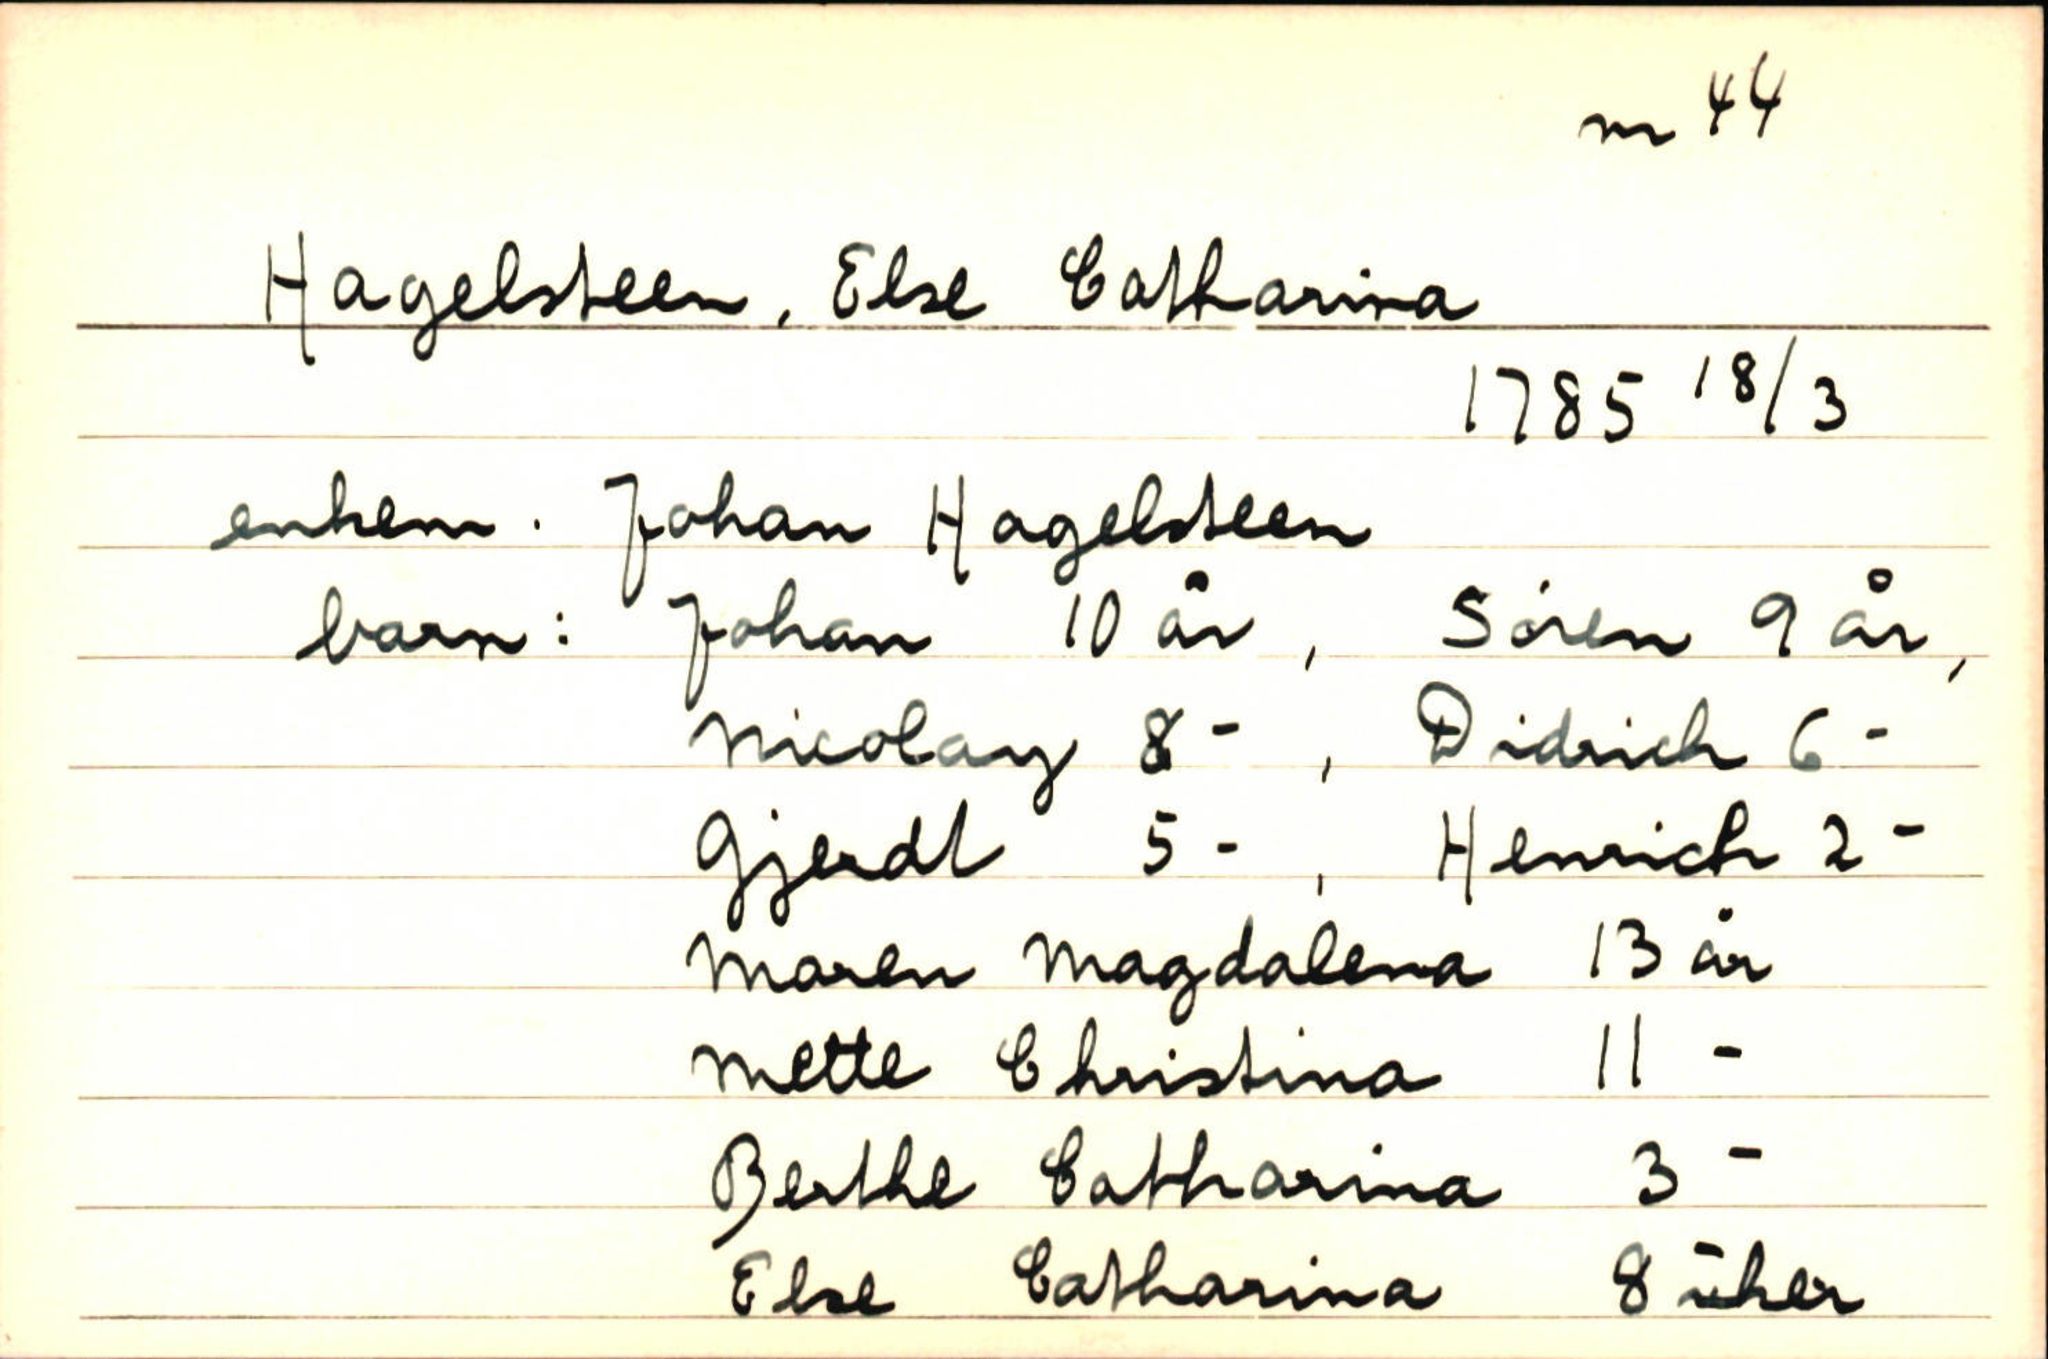 nr 44
Hagelsteen, Else Catharina
1785 18/3
enkem. Johan Hagelsteen
barn: Johan 10 år, Sören 9 år,
Nicolay 8 -, Didrich 6 -
Gjerdt 5 -, Henrich 2 -
Maren Magdalena 13 år
Mette Christina 11 -
Berthe Catharina 3 -
Else Catharina 8 uker